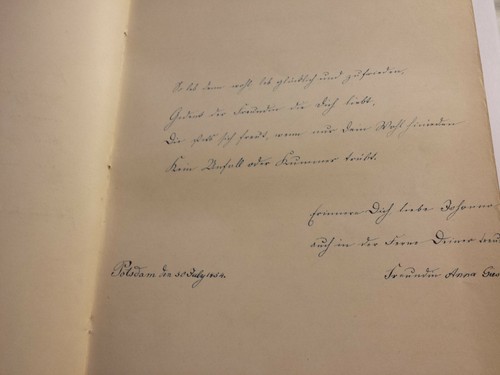 So leb denn wohl, leb glücklich und zufrieden,
Gedenk der Freundin die Dich liebt,
Die stets sich freut, wenn nur Dein Wohl hienieden
Kein Unfall oder Kummer trübt.
Erinnere Dich liebe Johanna
auch in der Ferne Deiner treu
Potsdam, den 30 July 1854.
Freundin Anna